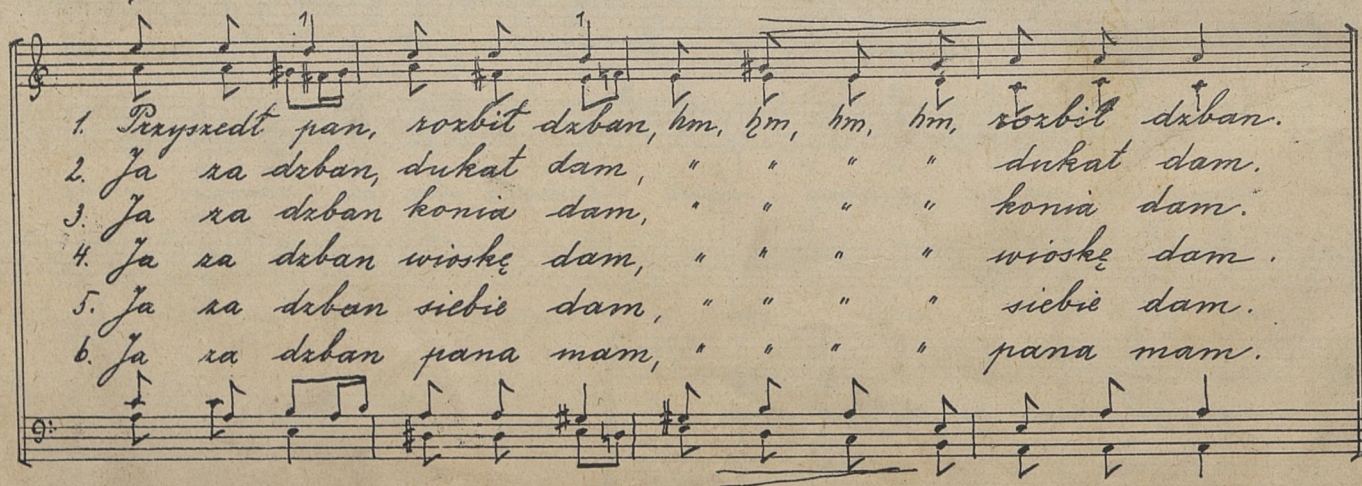 1. Przyszedł pan, rozbił dzban, hm, hm, hm, hm, rozbił dzban.
2. Ja za dzban, dukat dam, " " " " dukat dam.
3. Ja za dzban konia dam, " " " " konia dam.
4. Ja za dzban wioskę dam, " " " " wioskę dam.
5. Ja za dzban siebie dam, " " " " siebie dam.
6. Ja za dzban pana mam, " " " " pana mam.